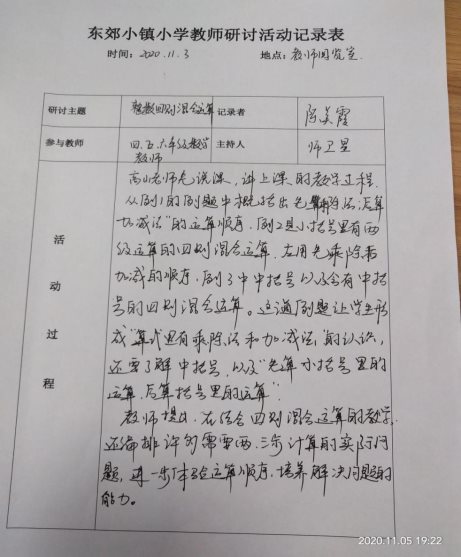 东郊小镇小学教师研讨活动记录表
时间：2020.11.3 地点：教师阅览室
研讨主题 整数四则混合运算 记录者 陈美霞
参与教师 四、五、六年级数学教师 主持人 师卫星
活动过程
高山老师先说课，讲上课的教学过程，
从例1的例题中概括出先算乘除法，后算
加减法”的运算顺序，例2是小括号里有两
级运算的四则混合运算，应用先乘除后
加减的顺序，例3中中括号以及含有中括
号的四则混合运算。这道例题让学生形
成“算式里有乘除法和加减法”的认识，
还要了解中括号，以及“先算小括号里的
运算，后算括号里的运算”
教师提出，在结合四则混合运算的教学，
还安排许多需要两、三步计算的实际问
题，进一步体验运算顺序，培养解决问题的
能力。
2020.11.05 19:22